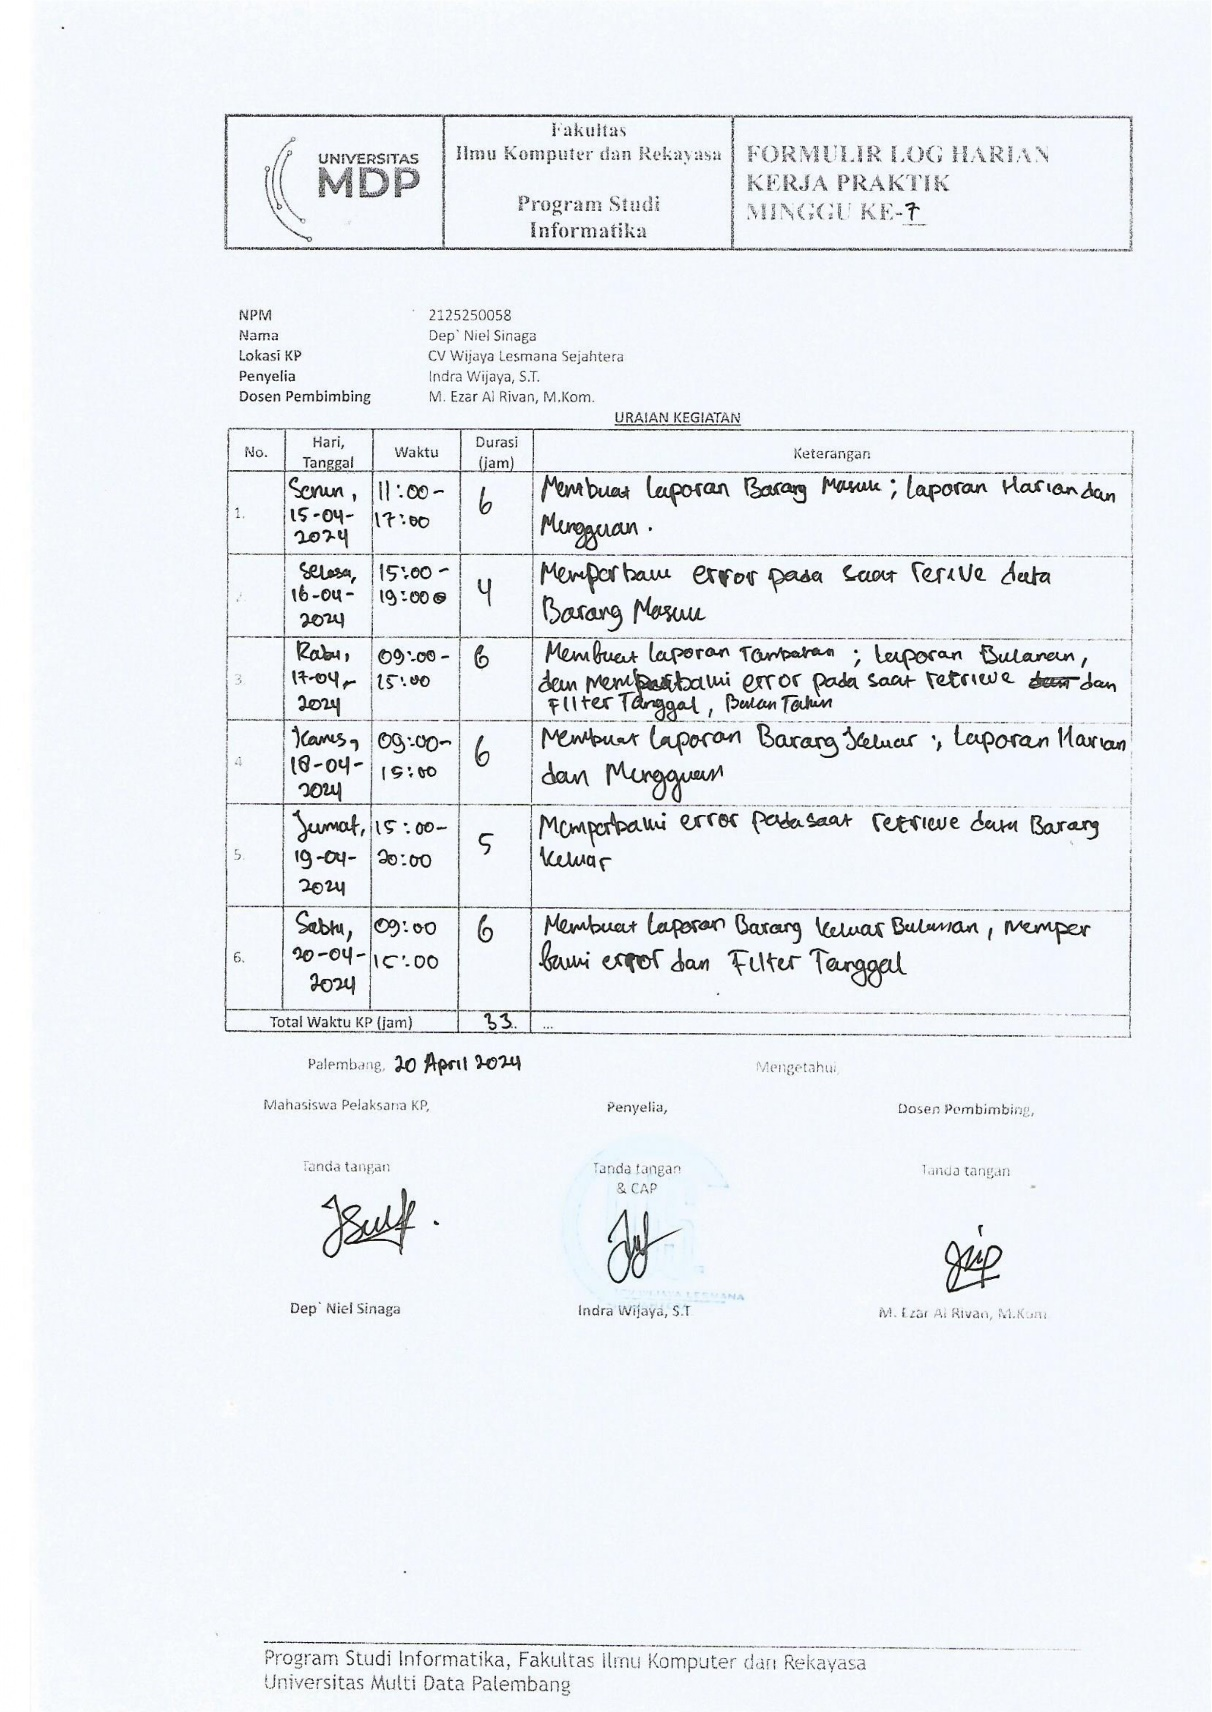 UNIVERSITAS
MDP
Fakultas
Ilmu Komputer dan Rekayasa
Program Studi
Informatika
FORMULIR LOG HARIAN
KERJA PRAKTIK
MINGGU KE-7
NPM 2125250058
Nama Dep` Niel Sinaga
Lokasi KP CV Wijaya Lesmana Sejahtera
Penyelia Indra Wijaya, S.T.
Dosen Pembimbing M. Ezar Al Rivan, M.Kom.
URAIAN KEGIATAN
No. Hari, Tanggal Waktu Durasi (jam) Keterangan
1. Senin, 15-04-2024 11:00-17:00 6 Membuat Laporan Barang Masuk ; Laporan Harian dan
Mingguan.
2. Selasa, 16-04-2024 15:00-19:00 4 Memperbaiki error pada saat rerive data
Barang Masuk
3 Rabu, 17-04-2024 09:00-15:00 6 Membuat Laporan Tambahan ; Laporan Bulanan,
dan memperbaiki error pada saat retrieve dan
Filter Tanggal, Bulan Tahun
4 Kamis, 18-04-2024 09:00-15:00 6 Membuat Laporan Barang Keluar ; Laporan Harian
dan Mingguan
5. Jumat, 19-04-2024 15:00-20:00 5 Memperbaiki error pada saat retrieve data Barang
Keluar
6. Sabtu, 20-04-2024 09:00 15:00 6 Membuat Laporan Barang Keluar Bulanan, Memper
baiki error dan Filter Tanggal
Total Waktu KP (jam) 33. ...
Palembang, 20 April 2024 Mengetahui,
Mahasiswa Pelaksana KP, Penyelia, Dosen Pembimbing,
Tanda tangan Tanda tangan Tanda tangan
& CAP
LESMANA
Dep` Niel Sinaga Indra Wijaya, S.T M. Ezar Al Rivan, M.Kom
Program Studi Informatika, Fakultas Ilmu Komputer dan Rekayasa
Universitas Multi Data Palembang